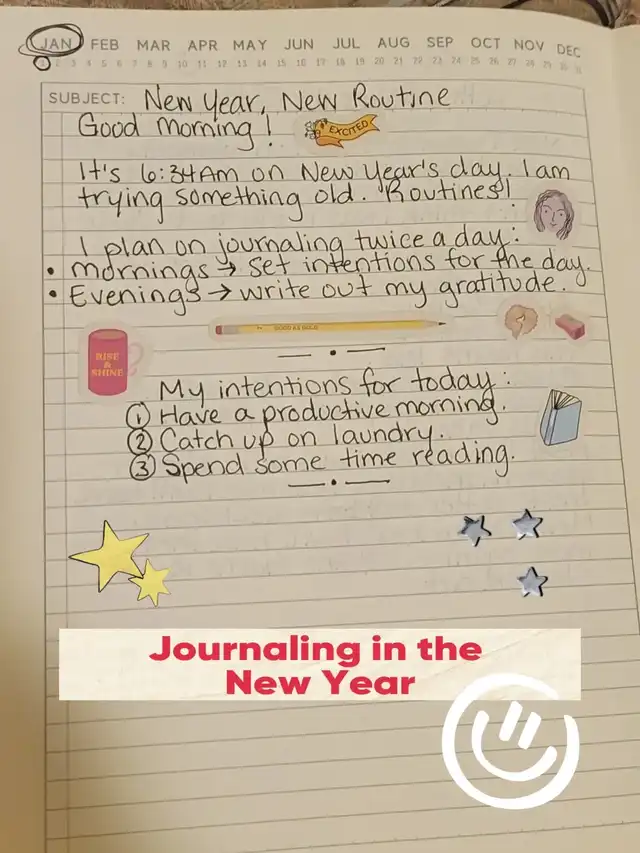 JAN FEB MAR APR MAY JUN JUL AUG SEP OCT NOV DEC
1 2 3 4 5 6 7 8 9 10 11 12 13 14 15 16 17 18 19 20 21 22 23 24 25 26 27 28 29 30 31
SUBJECT: New Year, New Routine
Good morning!
EXCITED
It's 6:34AM on New Year's day. I am
trying something old. "Routines"!
I plan on journaling twice a day:
• mornings → set intentions for the day.
• Evenings → write out my gratitude.
2 GOOD AS GOLD
RISE
&
SHINE
My intentions for today:
① Have a productive morning.
② Catch up on laundry.
③ Spend some time reading.
Journaling in the
New Year